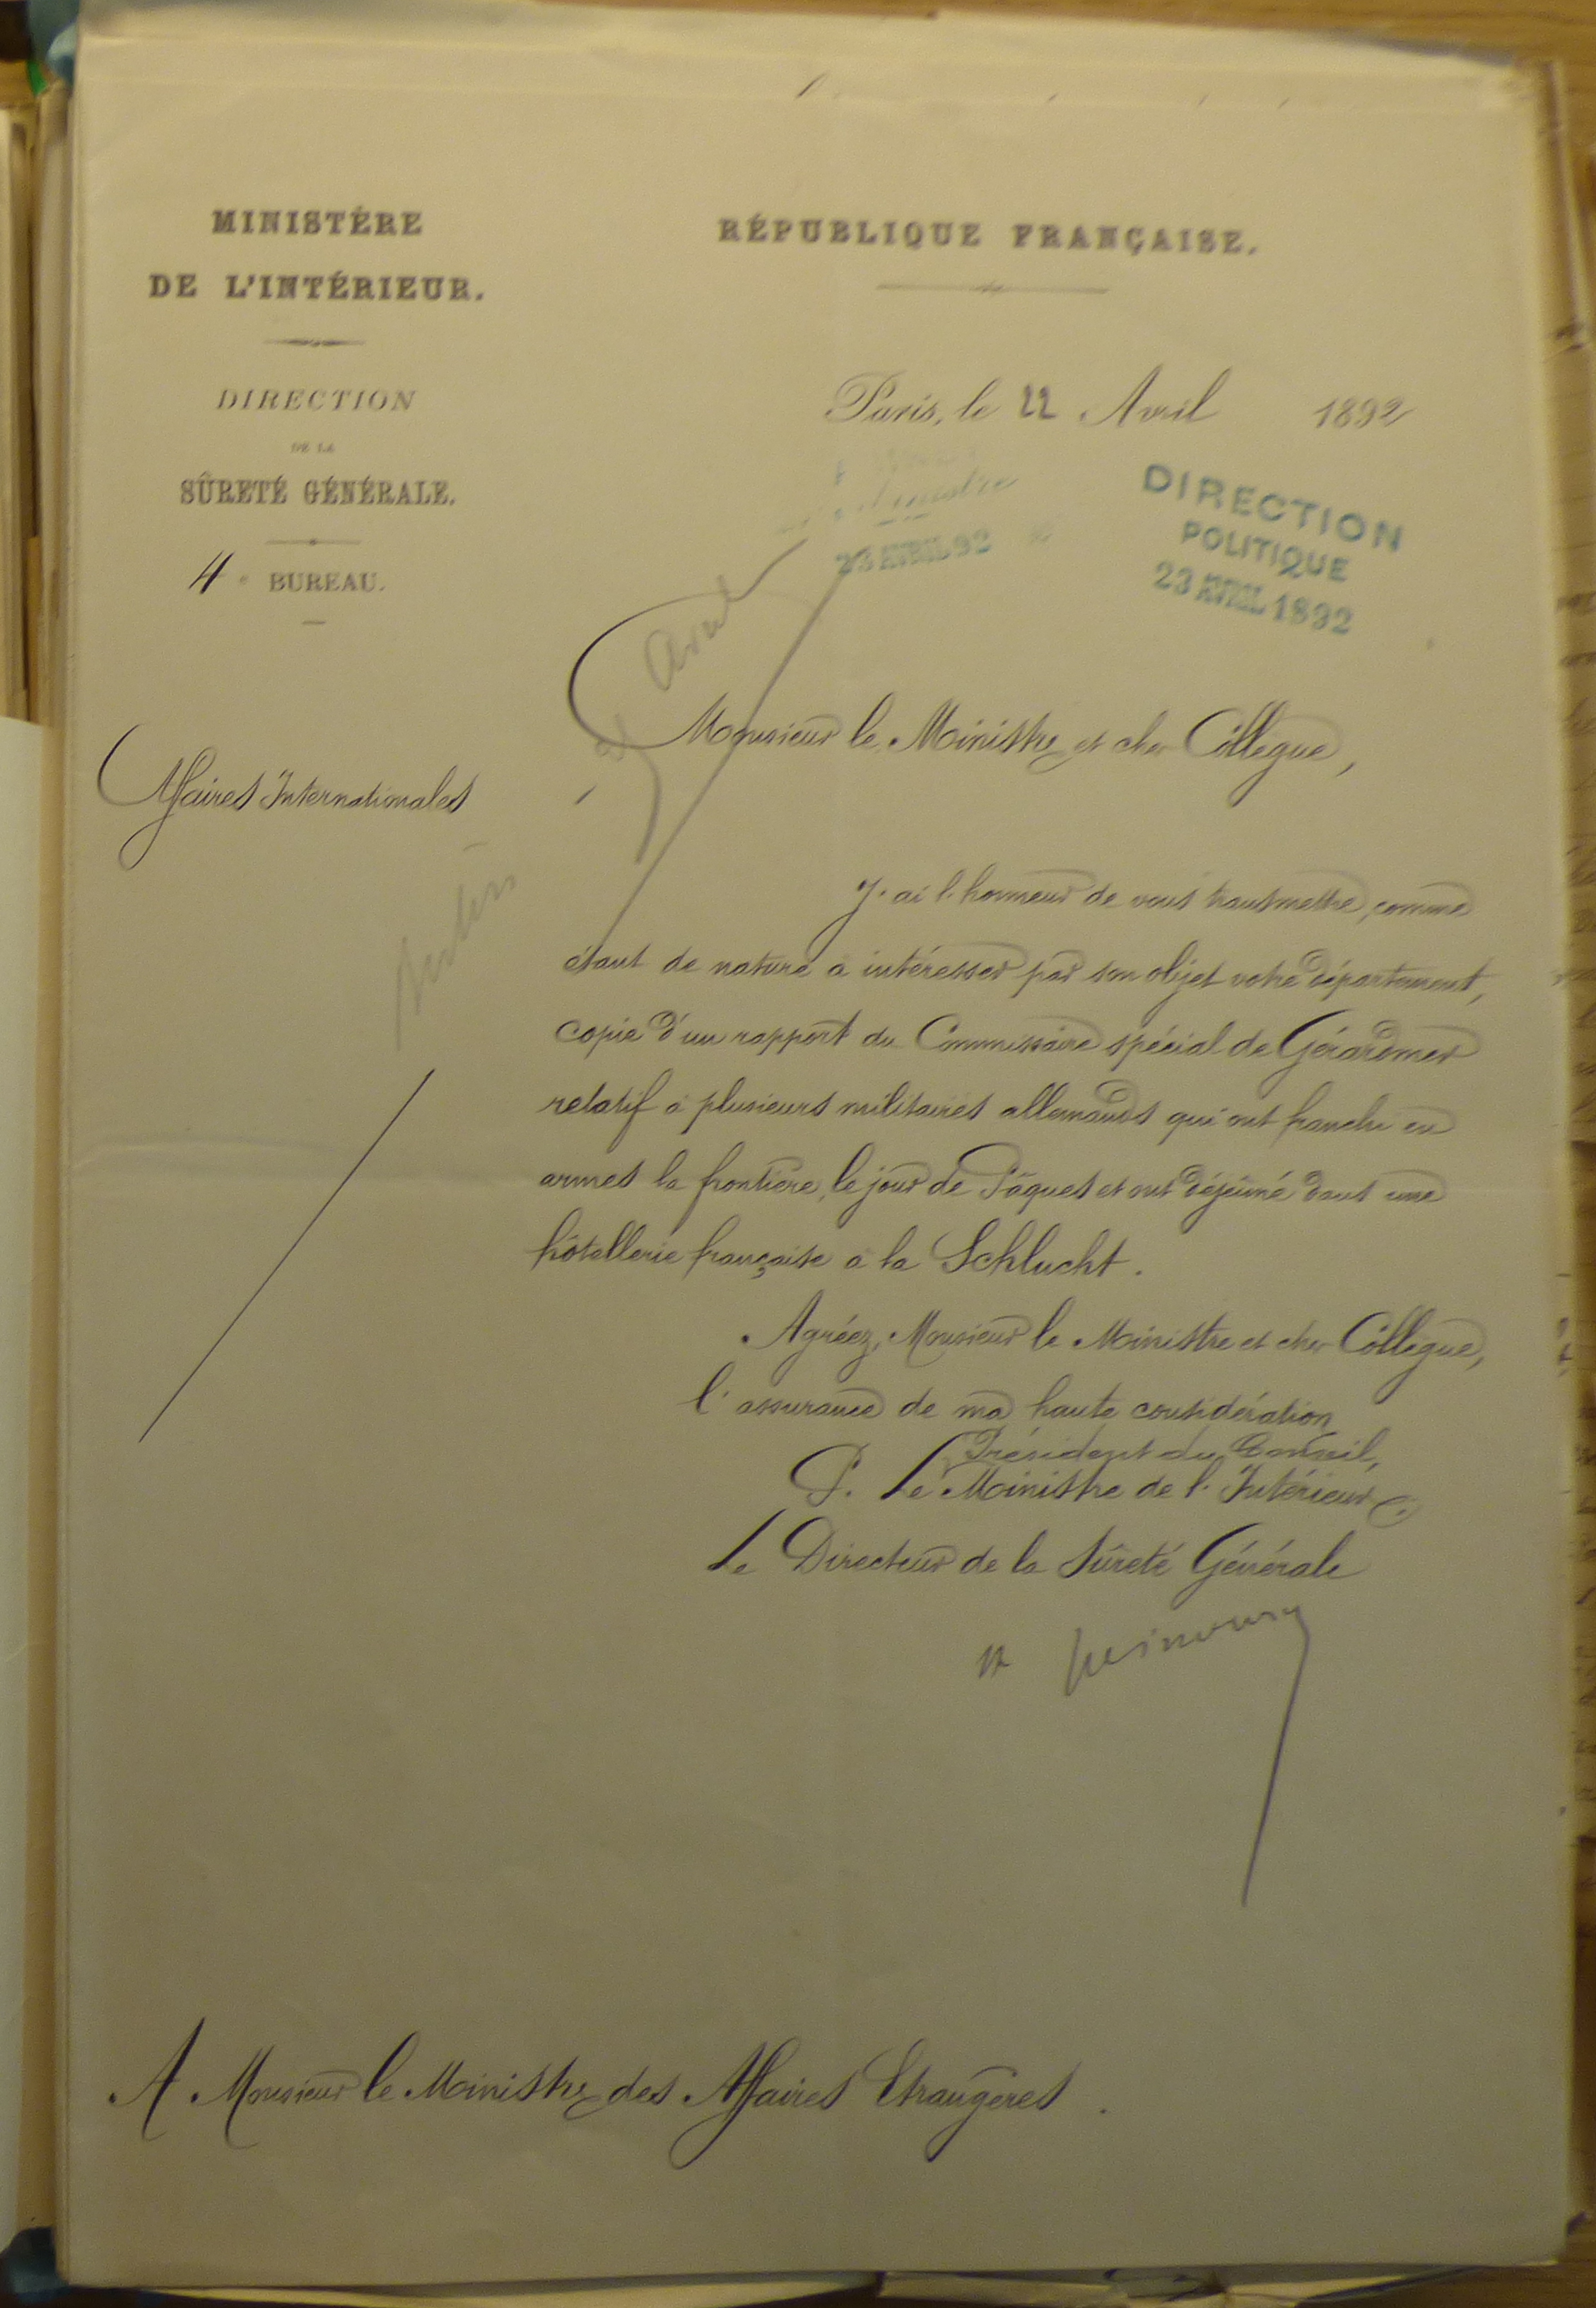 MINISTÈRE
DE L'INTÉRIEUR.
DIRECTION
DE LA
SÛRETÉ GÉNÉRALE.
4e BUREAU.
Affaires Internationales
RÉPUBLIQUE FRANÇAISE.
Paris, le 22 Avril 1892
23 AVRIL 92
DIRECTION
POLITIQUE
23 AVRIL 1892
Avril
Monsieur le Ministre et cher Collègue,
J'ai l'honneur de vous transmettre, comme
étant de nature à intéresser par son objet votre département,
copie d'un rapport du Commissaire spécial de Gérardmer
relatif à plusieurs militaires allemands qui ont franchi en
armes la frontière, le jour de Pâques et ont déjeûné dans une
hôtellerie française à la Schlucht.
Agréez, Monsieur le Ministre et cher Collègue,
l'assurance de ma haute considération
Président du Conseil,
P. Le Ministre de l'Intérieur
Le Directeur de la Sûreté Générale
A Monsieur le Ministre des Affaires Etrangères.